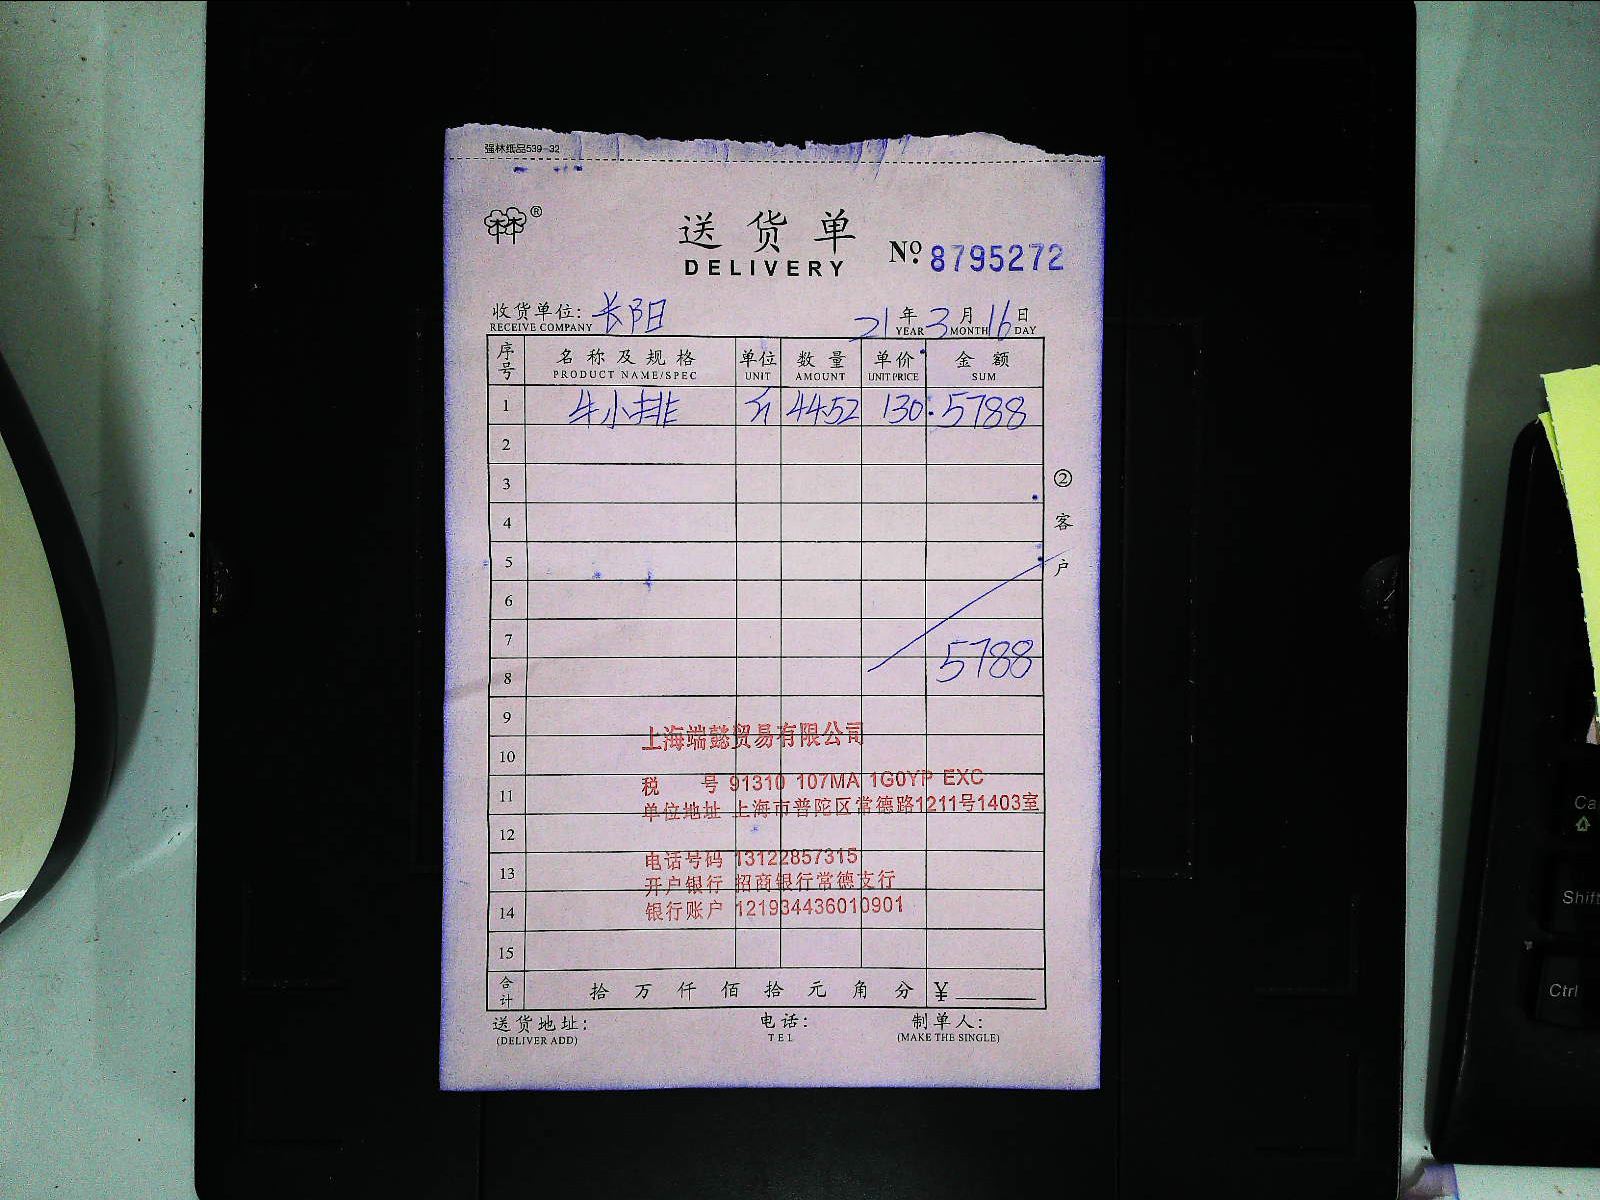 强林纸品539-32
林林®
送货单
DELIVERY
No. 8795272
收货单位: 长阳 21年3月16日
RECEIVE COMPANY YEAR MONTH DAY
序号 名称及规格 单位 数量 单价 金额
PRODUCT NAME/SPEC UNIT AMOUNT UNIT PRICE SUM
1 牛小排 斤 44.52 130. 5788
2
3
4
5
6
7
8 5788
② 客户
9
上海端懿贸易有限公司
10
税 号 91310 107MA 1G0YP EXC
11
单位地址 上海市普陀区常德路1211号1403室
12
电话号码 13122857315
13
开户银行 招商银行常德支行
14
银行账户 121934436010901
15
合计 拾万仟佰拾元角分 ¥
送货地址: 电话: 制单人:
(DELIVER ADD) TEL (MAKE THE SINGLE)
Ca
Shift
Ctrl